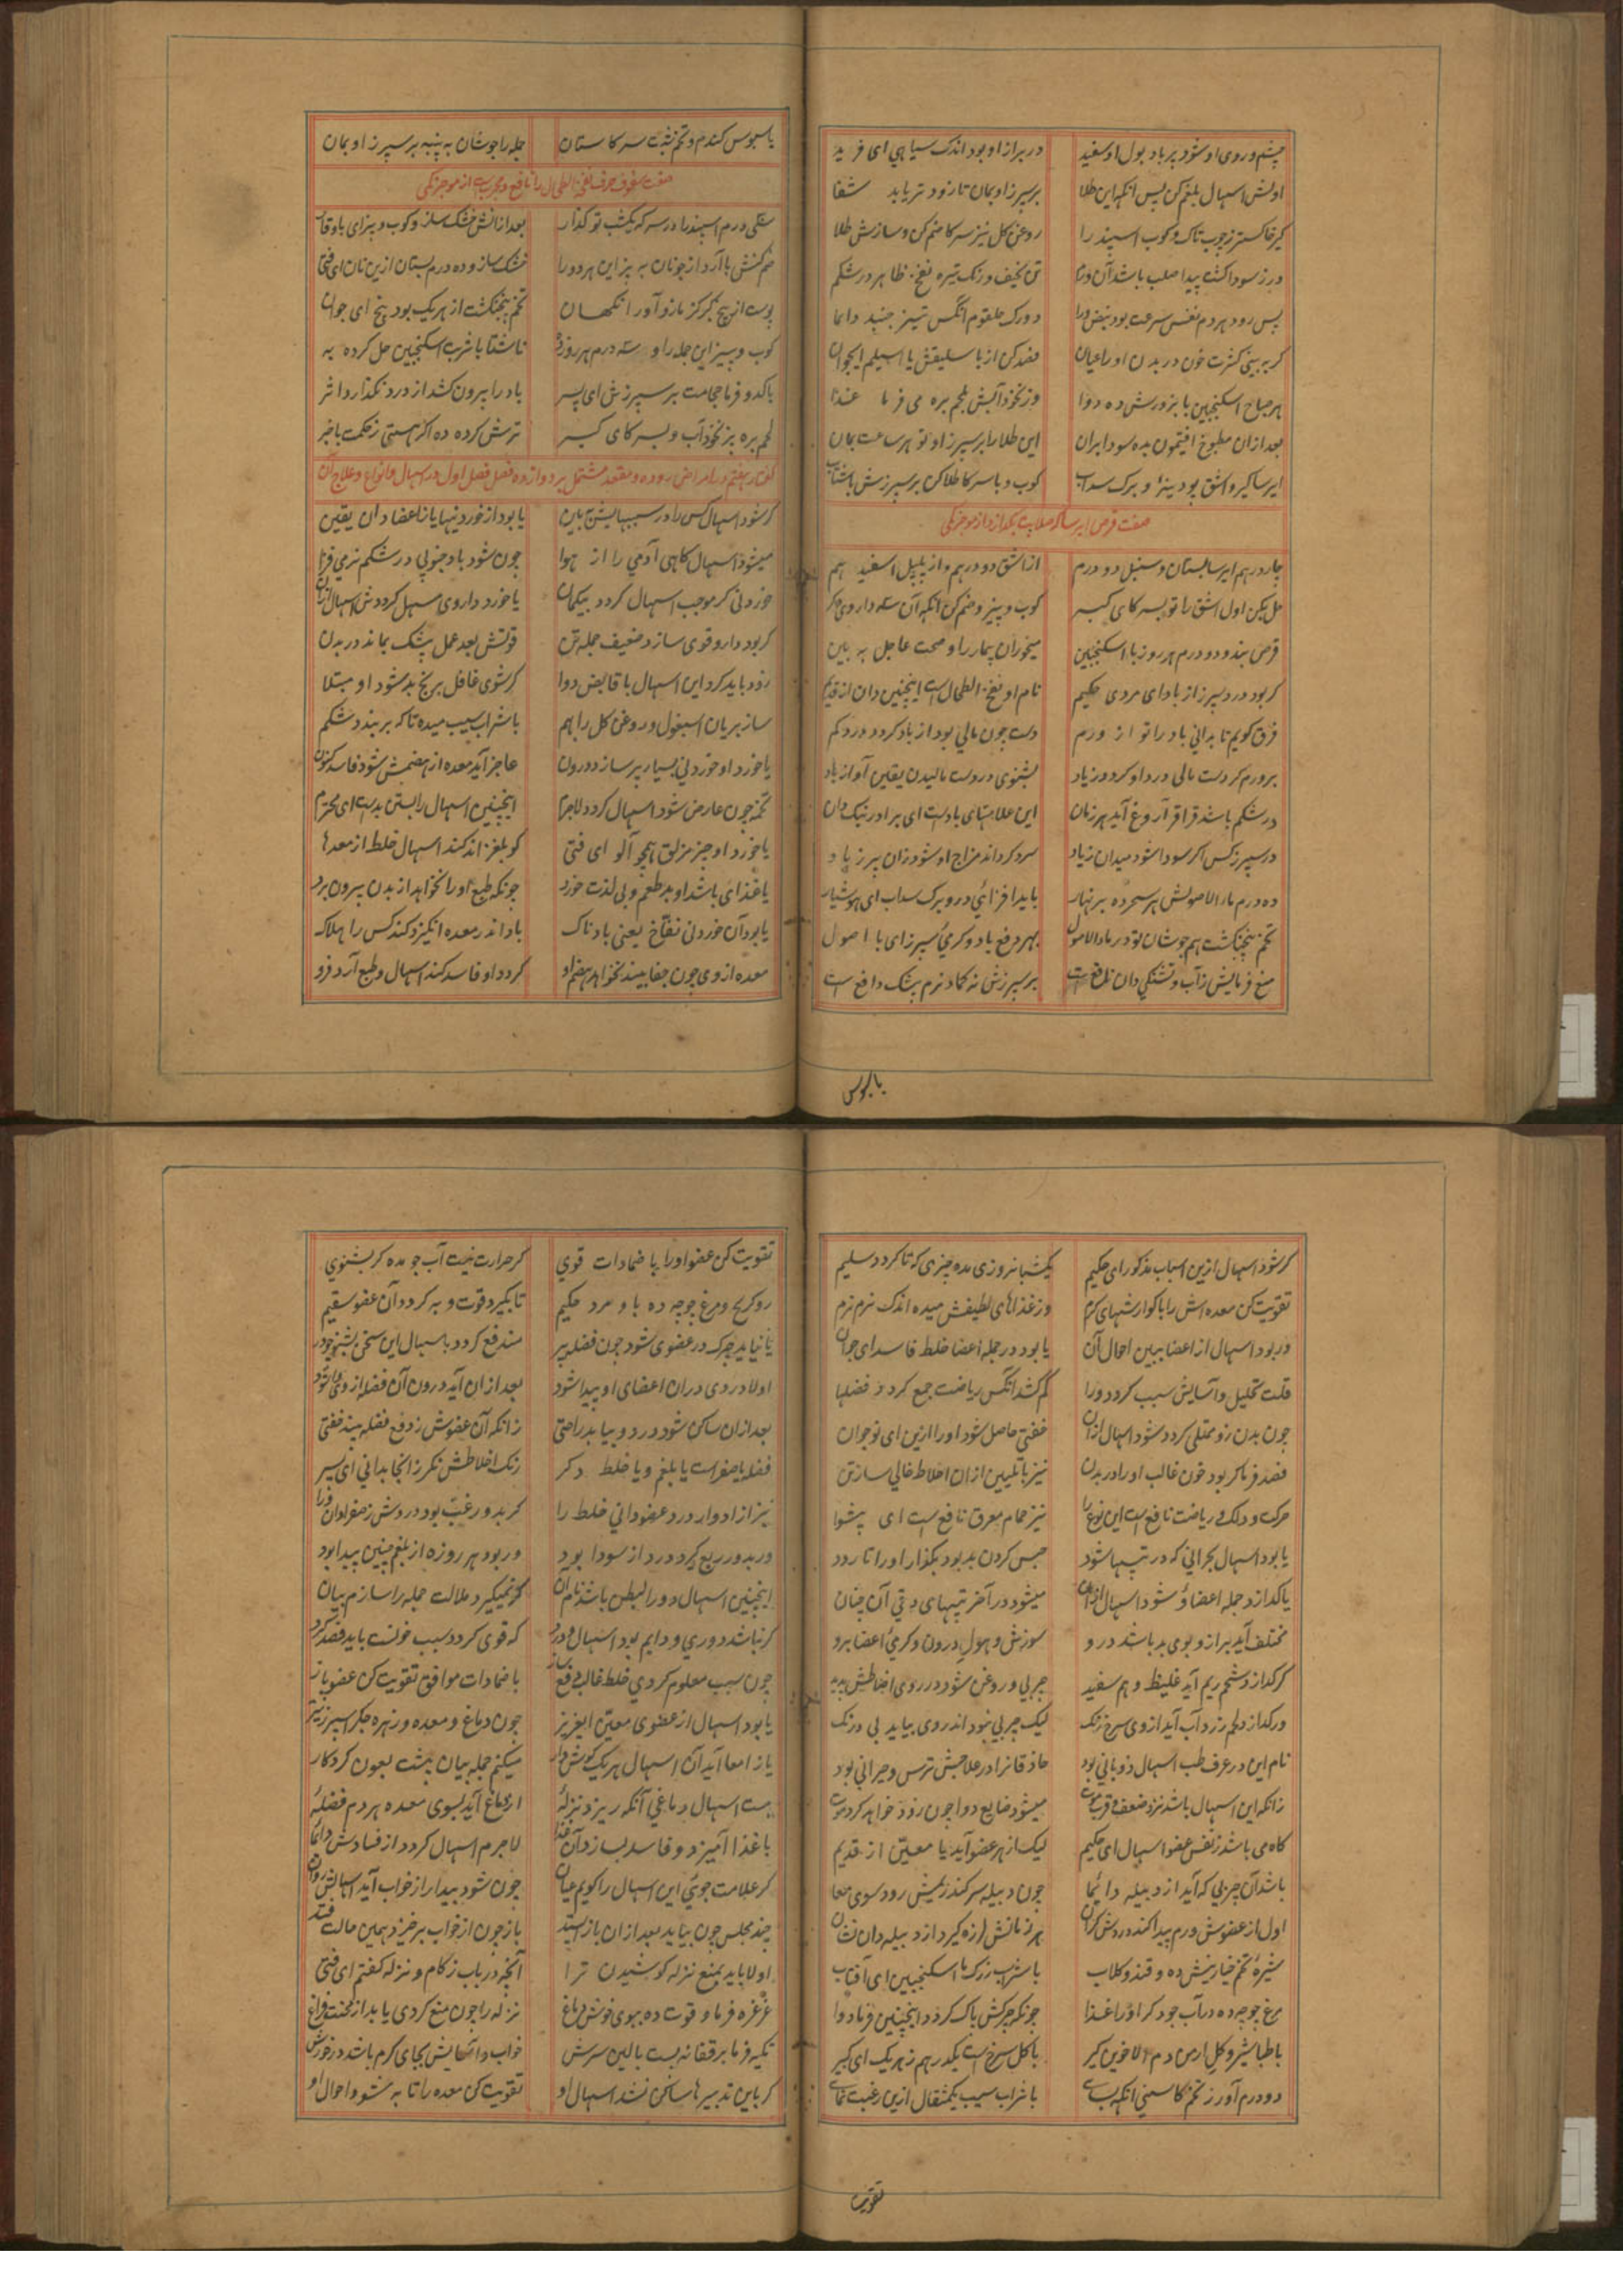 چشم و روی او شود پر باد بول او سفید در براز او بود اندک سیاهی ای فرید
اولش اسهال بلغم کن پس انکه این طلا بر سپرز او بمان تا زود تر یابد شفا
گیر خاکستر ز چوب تاک و کوب اسپند را روغن کل نیز سرکا ضم کن و سازش طلا
ور ز سودا کشت پیدا صلب باشد آن ورم تن نحیف و رنک تیره نفخ ظاهر در شکم
پس رود هر دم نفس سرعت بود نبض ورا دو رک حلقوم انکس تیز جنبد دائما
کر ببینی کثرت خون در بدن او را عیان فصد کن از باسلیقش یا اسیلم ای جوان
هر صباح اسکنجبین با بزورش ده دوا وز نخود آبش بلحم بره می فرما غذا
بعد ازان مطبوخ افتیمون بده سودا بران این طلا را بر سپرز او تو هر ساعت بمان
ایرسا کیر و اشق پودینه و برک سداب کوب و با سرکا طلا کن بر سپرزش باشتاب
صفت قرص ایرسا که صلابت بکدازد از موجزنکی
چار درهم ایرسا بستان و سنبل دو درم از اشق دو درهم و از پلپل اسفید هم
حل بکن اول اشق را تو بسرکا ای کبیر کوب و بیز و ضم کن انکه آن سه داروی دکر
قرص بند و دو درم هر روز با اسکنجبین میخوران بیمار را و صحت عاجل ببین
کر بود درد سپرز از باد ای مرد حکیم نام او نفخة الطحال است اینچنین دان از قدیم
فرق کویم تا بدانی باد را تو از ورم دست چون مالی بود از باد کردد درد کم
بر ورم کر دست مالی درد او کردد زیاد بشنوی در وست مالیدن یقین آواز باد
در شکم باشد قراقر آروغ آید هر زمان این علامتهای بادست ای برادر نیک دان
در سپرز کس اکر سودا شود میدان زیاد سرد کرداند مزاج او شود زان پر ز باد
ده درم ماء الاصولش هر سحر ده بر نهار باید افزائی درو برک سداب ای هوشیار
تخم پنجنکشت هم جوشان تو در ماء الاصول بهر دفع باد و کرمی سپرز ای با اصول
منع فرمایش ز آب و تشنکی دان نافع است بر سپرزش نه کماد نرم بشک دافع است
باسبوس
یا سبوس کندم و تخم شبت سرکا ستان جمله را جوشان به پنبه بر سپرز او بمان
صفت سفوف حرف نفخ الطحال را نافع و مجرب است از موجزنکی
سی درم اسپند را در سرکه یکشب تو کذار بعد ازانش خشک ساز و کوب و بیز ای باوقار
ضم کنش با آرد از جو نان به پز این هر دو را خشک ساز و ده درم بستان ازین نان ای فتی
پوست از بیخ کبر کز مازو آور انکهان تخم پنجنکشت از هر یک بود پنج ای جوان
کوب و بیز این جمله را و سه درم هر روزه ناشتا با شربت اسکنجبین حل کرده به
با کدو فرما حجامت بر سپرزش ای پسر باد را بیرون کشد از درد نکذارد اثر
لحم بره پز نخود آب و بسرکا ای کبیر ترش کرده ده اکر هستی ز حکمت باخبر
کفتار هفتم در امراض روده و مقعد مشتمل بر دوازده فصل فصل اول در اسهال و انواع و علاج آن
کر شود اسهال کس را در سببهایش ببین یا بود از خوردنیها یا ز اعضا دان یقین
میشود اسهال کاهی آدمی را از هوا چون شود باد جنوبی در شکم نرمی فزا
خوردنی کر موجب اسهال کردد بیکمان یا خورد داروی مسهل کرددش اسهال ازان
کر بود دارو قوی سازد ضعیف جمله تن قوتش بعد عمل بیشک بماند در بدن
زود باید کرد این اسهال با قابض دوا کر شوی غافل برنج بد شود او مبتلا
ساز بریان اسبغول و روغن کل را بهم با شراب سیب میده تا که بر بندد شکم
یا خورد او خوردنی بسیار پر سازد درون عاجز آید معده از هضمش شود فاسد کنون
تخمه چون عارض شود اسهال کردد لاجرم اینچنین اسهال را بستن بدست ای محترم
یا خورد او چیز مزلق همچو آلو ای فتی کو بلغزاند کند اسهال خلط از معدها
یا غذائی باشد او بد طعم و بی لذت خورد چونکه طبع او را نخواهد از بدن بیرون برد
یا بود آن خوردنی نفاخ یعنی بادناک باد اندر معده انکیزد کند کس را هلاک
معده از وی چون جفا بیند نخواهد هضم او کردد او فاسد کند اسهال و طبع آرد فرو
کر شود اسهال ازین اسباب مذکور ای حکیم یکشبانروزی مده چیزی که تا کردد سلیم
تقویت کن معده اش را با کوارشهای کرم وز غذاهای لطیفش میده اندک نرم نرم
ور بود اسهال از اعضا ببین احوال آن یا بود در جمله اعضا خلط فاسد ای جوان
قلت تحلیل و آسایش سبب کردد ورا کم کشد انکس ریاضت جمع کردد فضلها
چون بدن زو ممتلی کردد شود اسهال ازان خفتی حاصل شود او را ازین ای نوجوان
فصد فرما کر بود خون غالب او را در بدن نیز با تلیین ازان اخلاط خالی ساز تن
حرکت و دلک و ریاضت نافع است این نوع را نیز حمام معرق نافع است ای پیشوا
یا بود اسهال بحرانی که در تبها شود حبس کردن بد بود بکذار او را تا رود
یا کدازد جمله اعضا و شود اسهال ازان میشود در آخر تبهای دقی آن چنان
مختلف آید براز و بوی بد باشد درو سوزش و هول درون و کرمی اعضا برو
کر کدازد شحم ریم آید غلیظ و هم سفید چربی و روغن شود در روی اخلاطش پدید
ور کدازد لحم زرد آب آید از وی سرخ رنک لیک چربی نبود اندر وی بیاید بی درنک
نام این در عرف طب اسهال ذوبانی بود حاذقانرا در علاجش ترس و حیرانی بود
زانکه این اسهال باشد نزد ضعف و قرب موت میشود ضایع دوا چون زود خواهد کرد فوت
کاه می باشد ز نفس عضو اسهال ای حکیم لیک از هر عضو آید یا معین از قدیم
باشد آن چربی که آید از دبیله دائما چون دبیله سر کند ریمش رود سوی معا
اول از عضوش ورم پیدا کند در وش کران هر زمانش لرزه کیرد از دبیله دان نشان
شیره تخم خیارینش ده و قند و کلاب با شراب بزرک با اسکنجبین ای آفتاب
مرغ چوجه ده در آب جو دکر او را غذا چونکه چرکش پاک کردد اینچنین فرما دوا
با طباشیر و کل ارمن دم الاخوین کیر با کل سرخ است یکدرهم ز هر یک ای کبیر
دو درم آور ز تخم کاسنی انکه بساے با شراب سیب یکمثقال ازین رغبت نماے
تقویت
تقویت کن عضو او را با ضمادات قوی کر حرارت نیست آب جو مده کر بشنوی
رو کریح و مرغ چوجه ده باو مرد حکیم تا بکیرد قوت و به کردد آن عضو سقیم
یا نیاید چرک در عضوی شود چون فضله پر مندفع کردد باسهال این سخن بشنو چو در
اولا دردی دران اعضای او پیدا شود بعد ازان آید درون آن فضله از وی وا شود
بعد ازان ساکن شود درد و بیابد راحتی زانکه آن عضوش ز دفع فضله بیند خفتی
فضله یا صفراست یا بلغم و یا خلط دکر رنک اخلاطش نکر زانجا بدانی ای پسر
نیز از ادوار درد عضو دانی خلط را کر بدور غب بود دردش ز صفرا دان ورا
ور بدور ربع کیرد درد از سودا بود ور بود هر روزه از بلغم چنین پیدا بود
اینچنین اسهال دور البطن باشد نام آن کر نمیکیرد ملالت جمله را سازم بیان
کر نباشد دوری و دایم بود اسهال و درد که قوی کردد سبب خونست باید فصد کرد
چون سبب معلوم کردی خلط غالب دفع ساز با ضمادات موافق تقویت کن عضو باز
یا بود اسهال از عضوی معین ای عزیز چون دماغ و معده و زهره جکر اسپرز نیز
یا ز امعا آید آن اسهال هر یک کوش دار میکنم جمله بیان پیشت بعون کردکار
هست اسهال دماغی آنکه ریزد نزلهٔ از دماغ آید بسوی معده هر دم فضلهٔ
با غذا آمیزد و فاسد بسازد آن غذا لاجرم اسهال کردد از فسادش دائما
کر علامت جوئی این اسهال را کویم عیان چون شود بیدار از خواب آید اسهالش روان
چند مجلس چون بیاید بعد ازان باز ایستد باز چون از خواب برخیزد همین حالت فتد
اولا باید بمنع نزله کوشیدن ترا آنچه در باب زکام و نزله کفتم ای فتی
غرغره فرما و قوت ده ببوی خوش دماغ نزله را چون منع کردی یابد از محنت فراغ
تکیه فرما بر قفا نه پست بالین سرش خواب و آسایش بجای کرم باشد درخورش
کر باین تدبیرها ساکن نشد اسهال او تقویت کن معده را تا به شود احوال او